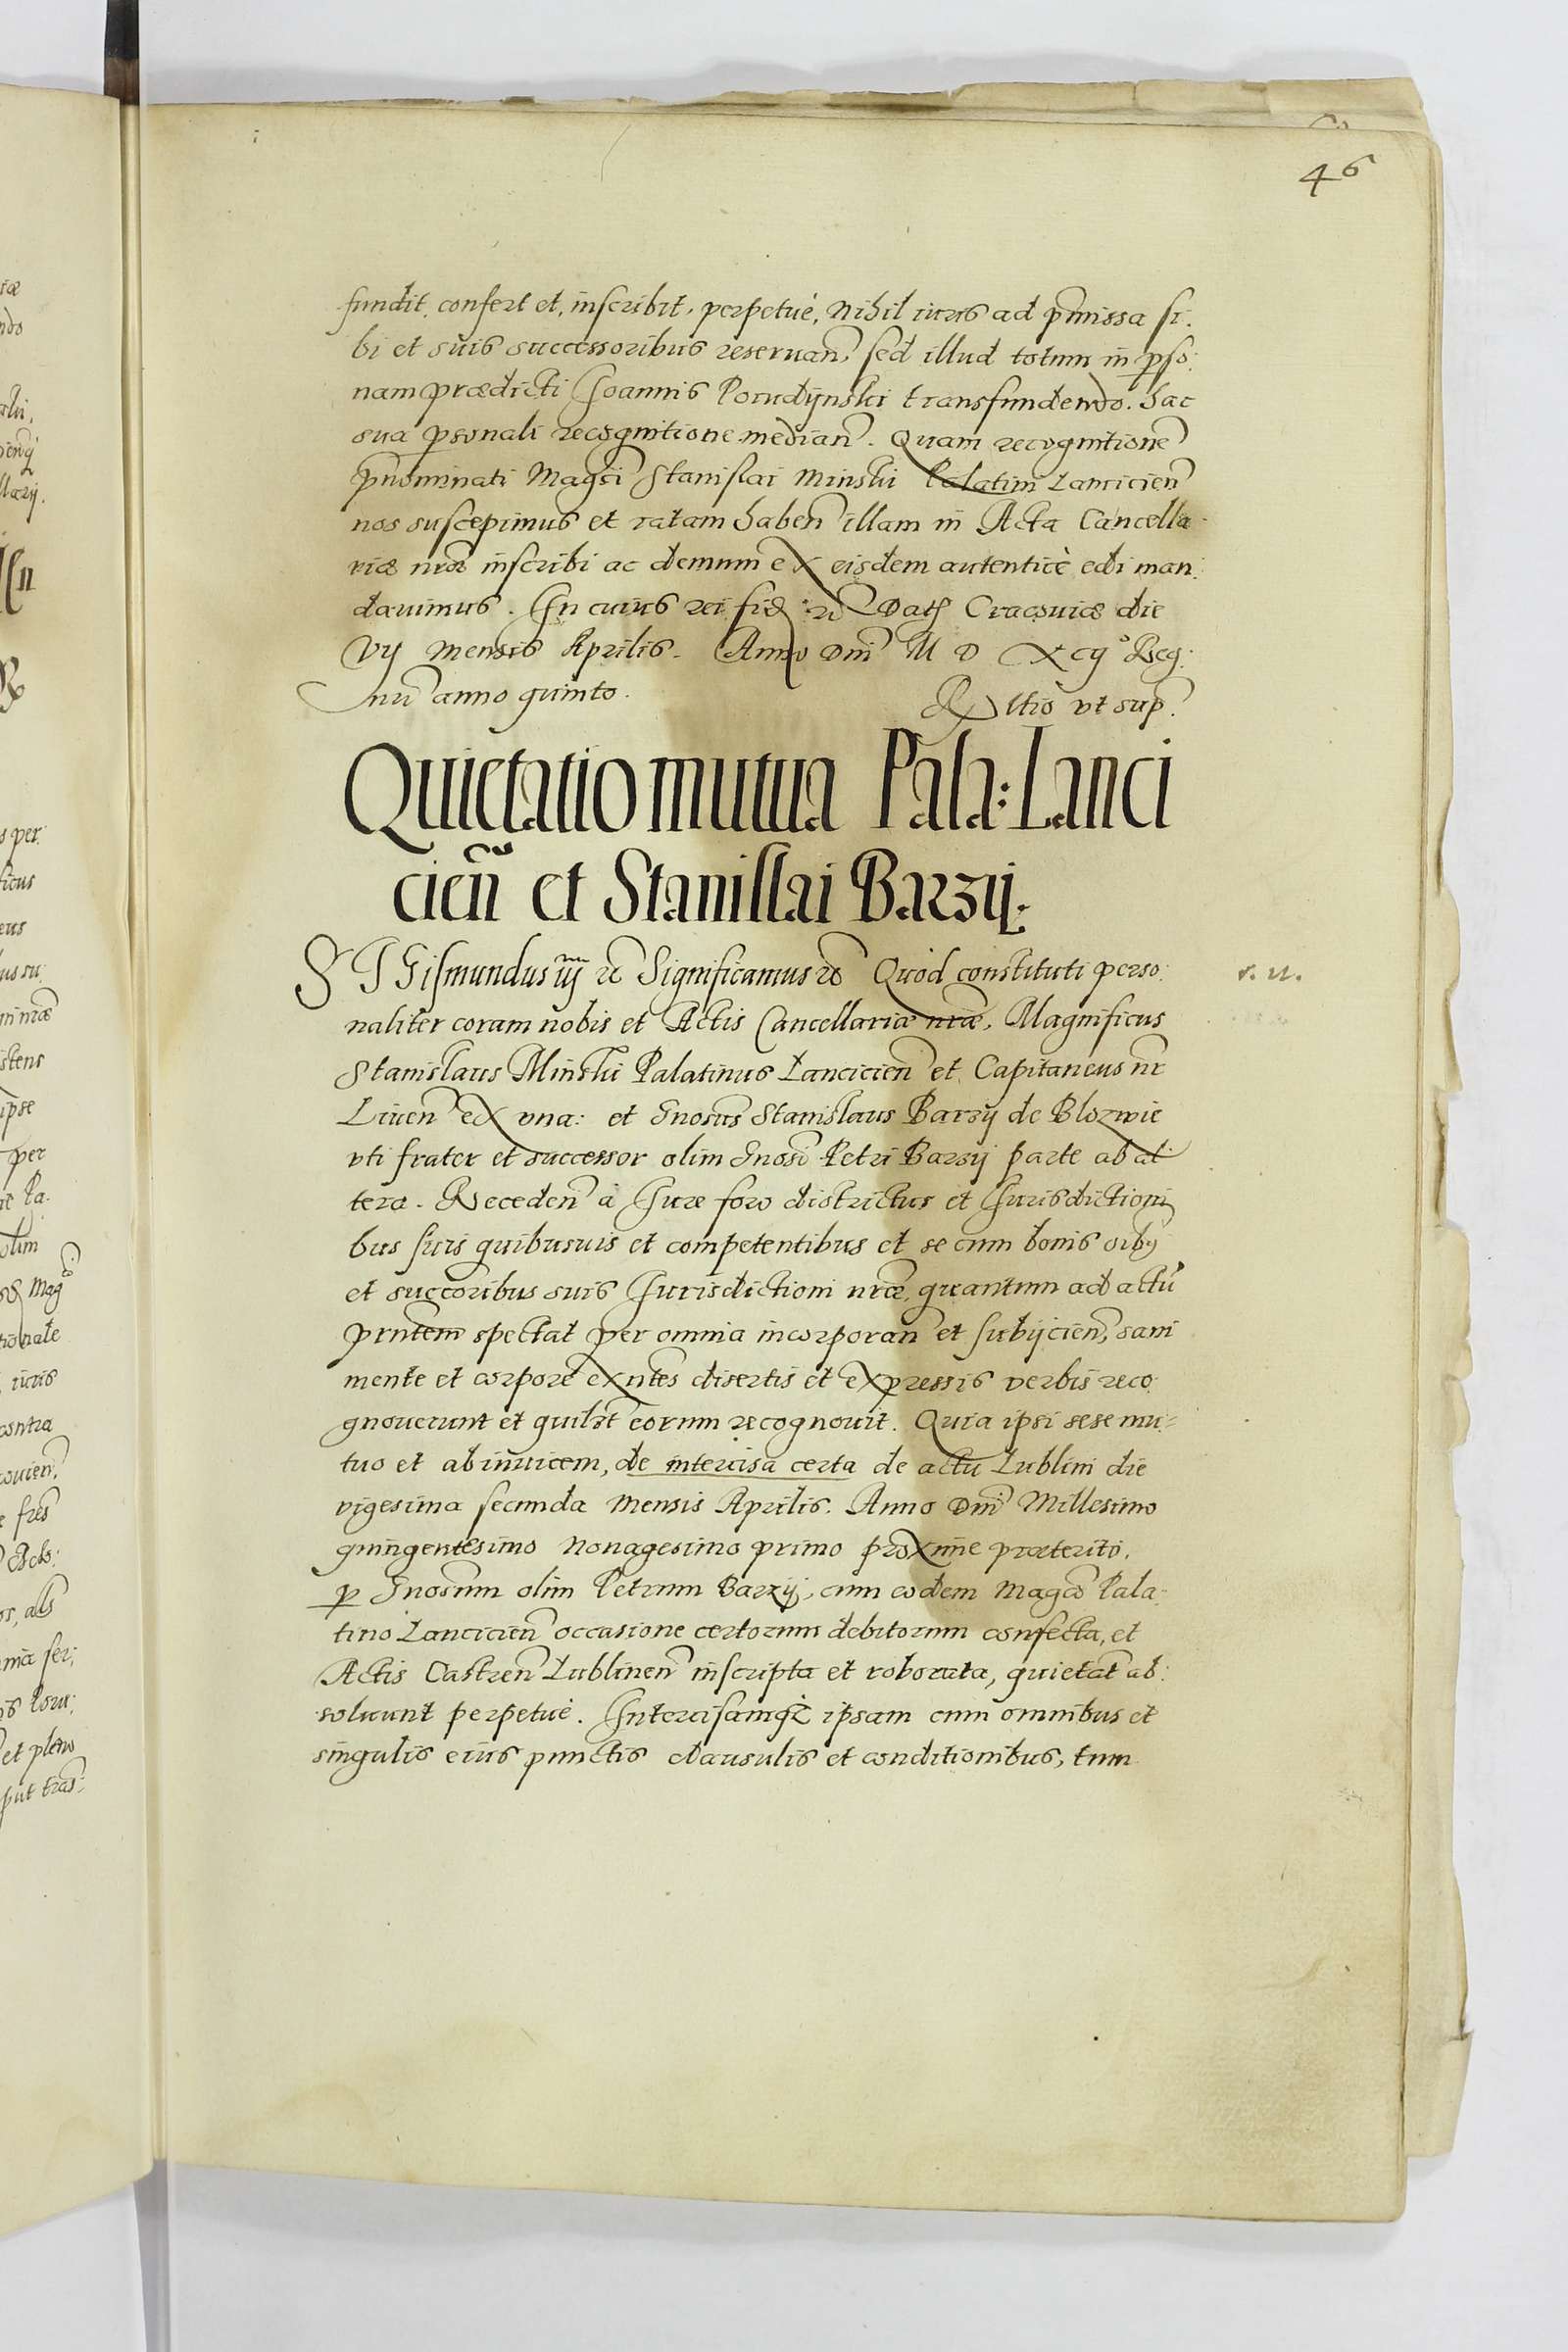 46
fundit, confert et, inscribit, perpetuè, Nihil iuris ad pr̃missa si.
bi et suis successoribus reseruan̄, sed illud totum in pso:
nam prædicti Joannis Porudÿnski transfundendo. hac
sua personali recognitione median̄. Quam recognitionē
pr̃nominati Magci Stanislai Minski Palatini Lancicien̄
nos suscepimus et ratam haben̄ illam in Acta Cancella-
riæ nr̃æ inscribi ac demum ex eisdem autenticè edi man:
dauimus. In cuius rei fid. Dat Cracouiæ die
Vij Mensis Aprilis. Anno Dni M D XCij° Reg:
nri anno quinto. ut sup.
Quietatio mutua Pala: Lanci
cien̄ et Stanislai Barzij.
SIGismundus iij rc Significamus rc Quòd constituti perso:
naliter coram nobis et Actis Cancellariæ nræ, Magnificus
Stanislaus Minski Palatinus Lancicien̄ et Capitaneus nr
Liuen̄ ex una: et Gnosus Stanislaus Barzij de Blozwie
vti frater et successor olim Gnosi Petri Barzij parte ab al
tera. Receden̄ à Jure foro districtus et Jurisdictioni
bus suis quibusuis et competentibus et se cum bonis oibq
et succoribus suis Jurisdictioni nræ, quantum ad actū
prntem spectat per omnia incorporan̄ et subijcien̄, sani
mente et corpore exntes disertis et expressis verbis reco:
gnouerunt et quilzt eorum recognouit. Quia ipsi sese mu-
tuo et ab inuicem, de intercisa certa de actu Lublini die
vigesima secunda Mensis Aprilis. Anno Dni Millesimo
quingentesimo Nonagesimo primo proxime præterito,
p Gnosum olim Petrum Barzij, cum eodem Magco Pala:
tino Lancicien̄ occasione certorum debitorum confecta, et
Actis Castren̄ Lublinen̄ inscripta et roborata, quietat̄ ab:
soluunt perpetuè. Intercisamqz ipsam cum omnibus et
singulis eius punctis clausulis et conditionibus, tum